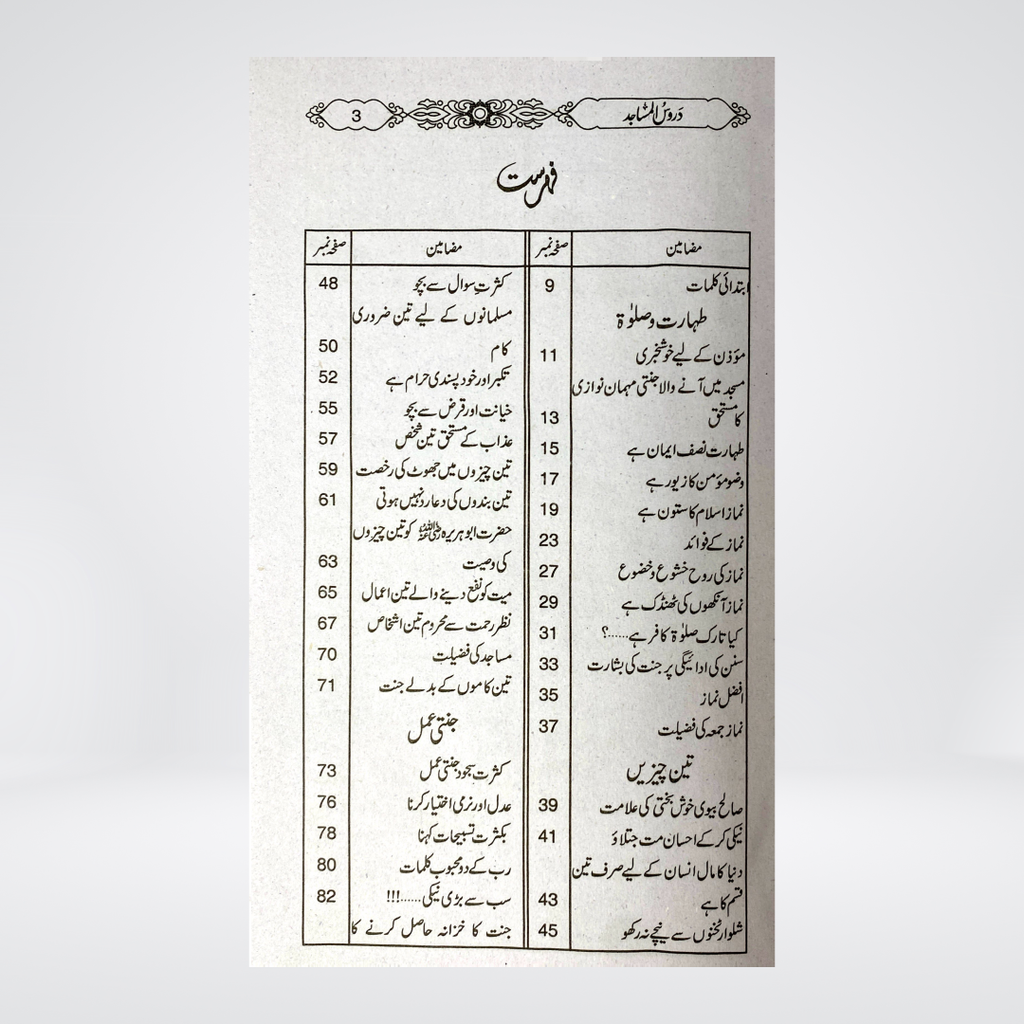 دَروسُ المَسَاجِد 3
فہرست
مضامین صفحہ نمبر
ابتدائی کلمات 9
طہارت و صلوٰۃ
مؤذن کے لیے خوشخبری 11
مسجد میں آنے والا جنتی مہمان نوازی
کا مستحق 13
طہارت نصف ایمان ہے 15
وضو مؤمن کا زیور ہے 17
نماز اسلام کا ستون ہے 19
نماز کے فوائد 23
نماز کی روح خشوع و خضوع 27
نماز آنکھوں کی ٹھنڈک ہے 29
کیا تارک صلوٰۃ کافر ہے......؟ 31
سنن کی ادائیگی پر جنت کی بشارت 33
افضل نماز 35
نماز جمعہ کی فضیلت 37
تین چیزیں
صالح بیوی خوش بختی کی علامت 39
نیکی کر کے احسان مت جتلاؤ 41
دنیا کا مال انسان کے لیے صرف تین
قسم کا ہے 43
شلوار ٹخنوں سے نیچے نہ رکھو 45
مضامین صفحہ نمبر
کثرتِ سوال سے بچو 48
مسلمانوں کے لیے تین ضروری
کام 50
تکبر اور خود پسندی حرام ہے 52
خیانت اور قرض سے بچو 55
عذاب کے مستحق تین شخص 57
تین چیزوں میں جھوٹ کی رخصت 59
تین بندوں کی دعا رد نہیں ہوتی 61
حضرت ابو ہریرہ رضی اللہ عنہ کو تین چیزوں
کی وصیت 63
میت کو نفع دینے والے تین اعمال 65
نظر رحمت سے محروم تین اشخاص 67
مساجد کی فضیلت 70
تین کاموں کے بدلے جنت 71
جنتی عمل
کثرت سجود جنتی عمل 73
عدل اور نرمی اختیار کرنا 76
بکثرت تسبیحات کہنا 78
رب کے دو محبوب کلمات 80
سب سے بڑی نیکی......!!! 82
جنت کا خزانہ حاصل کرنے کا